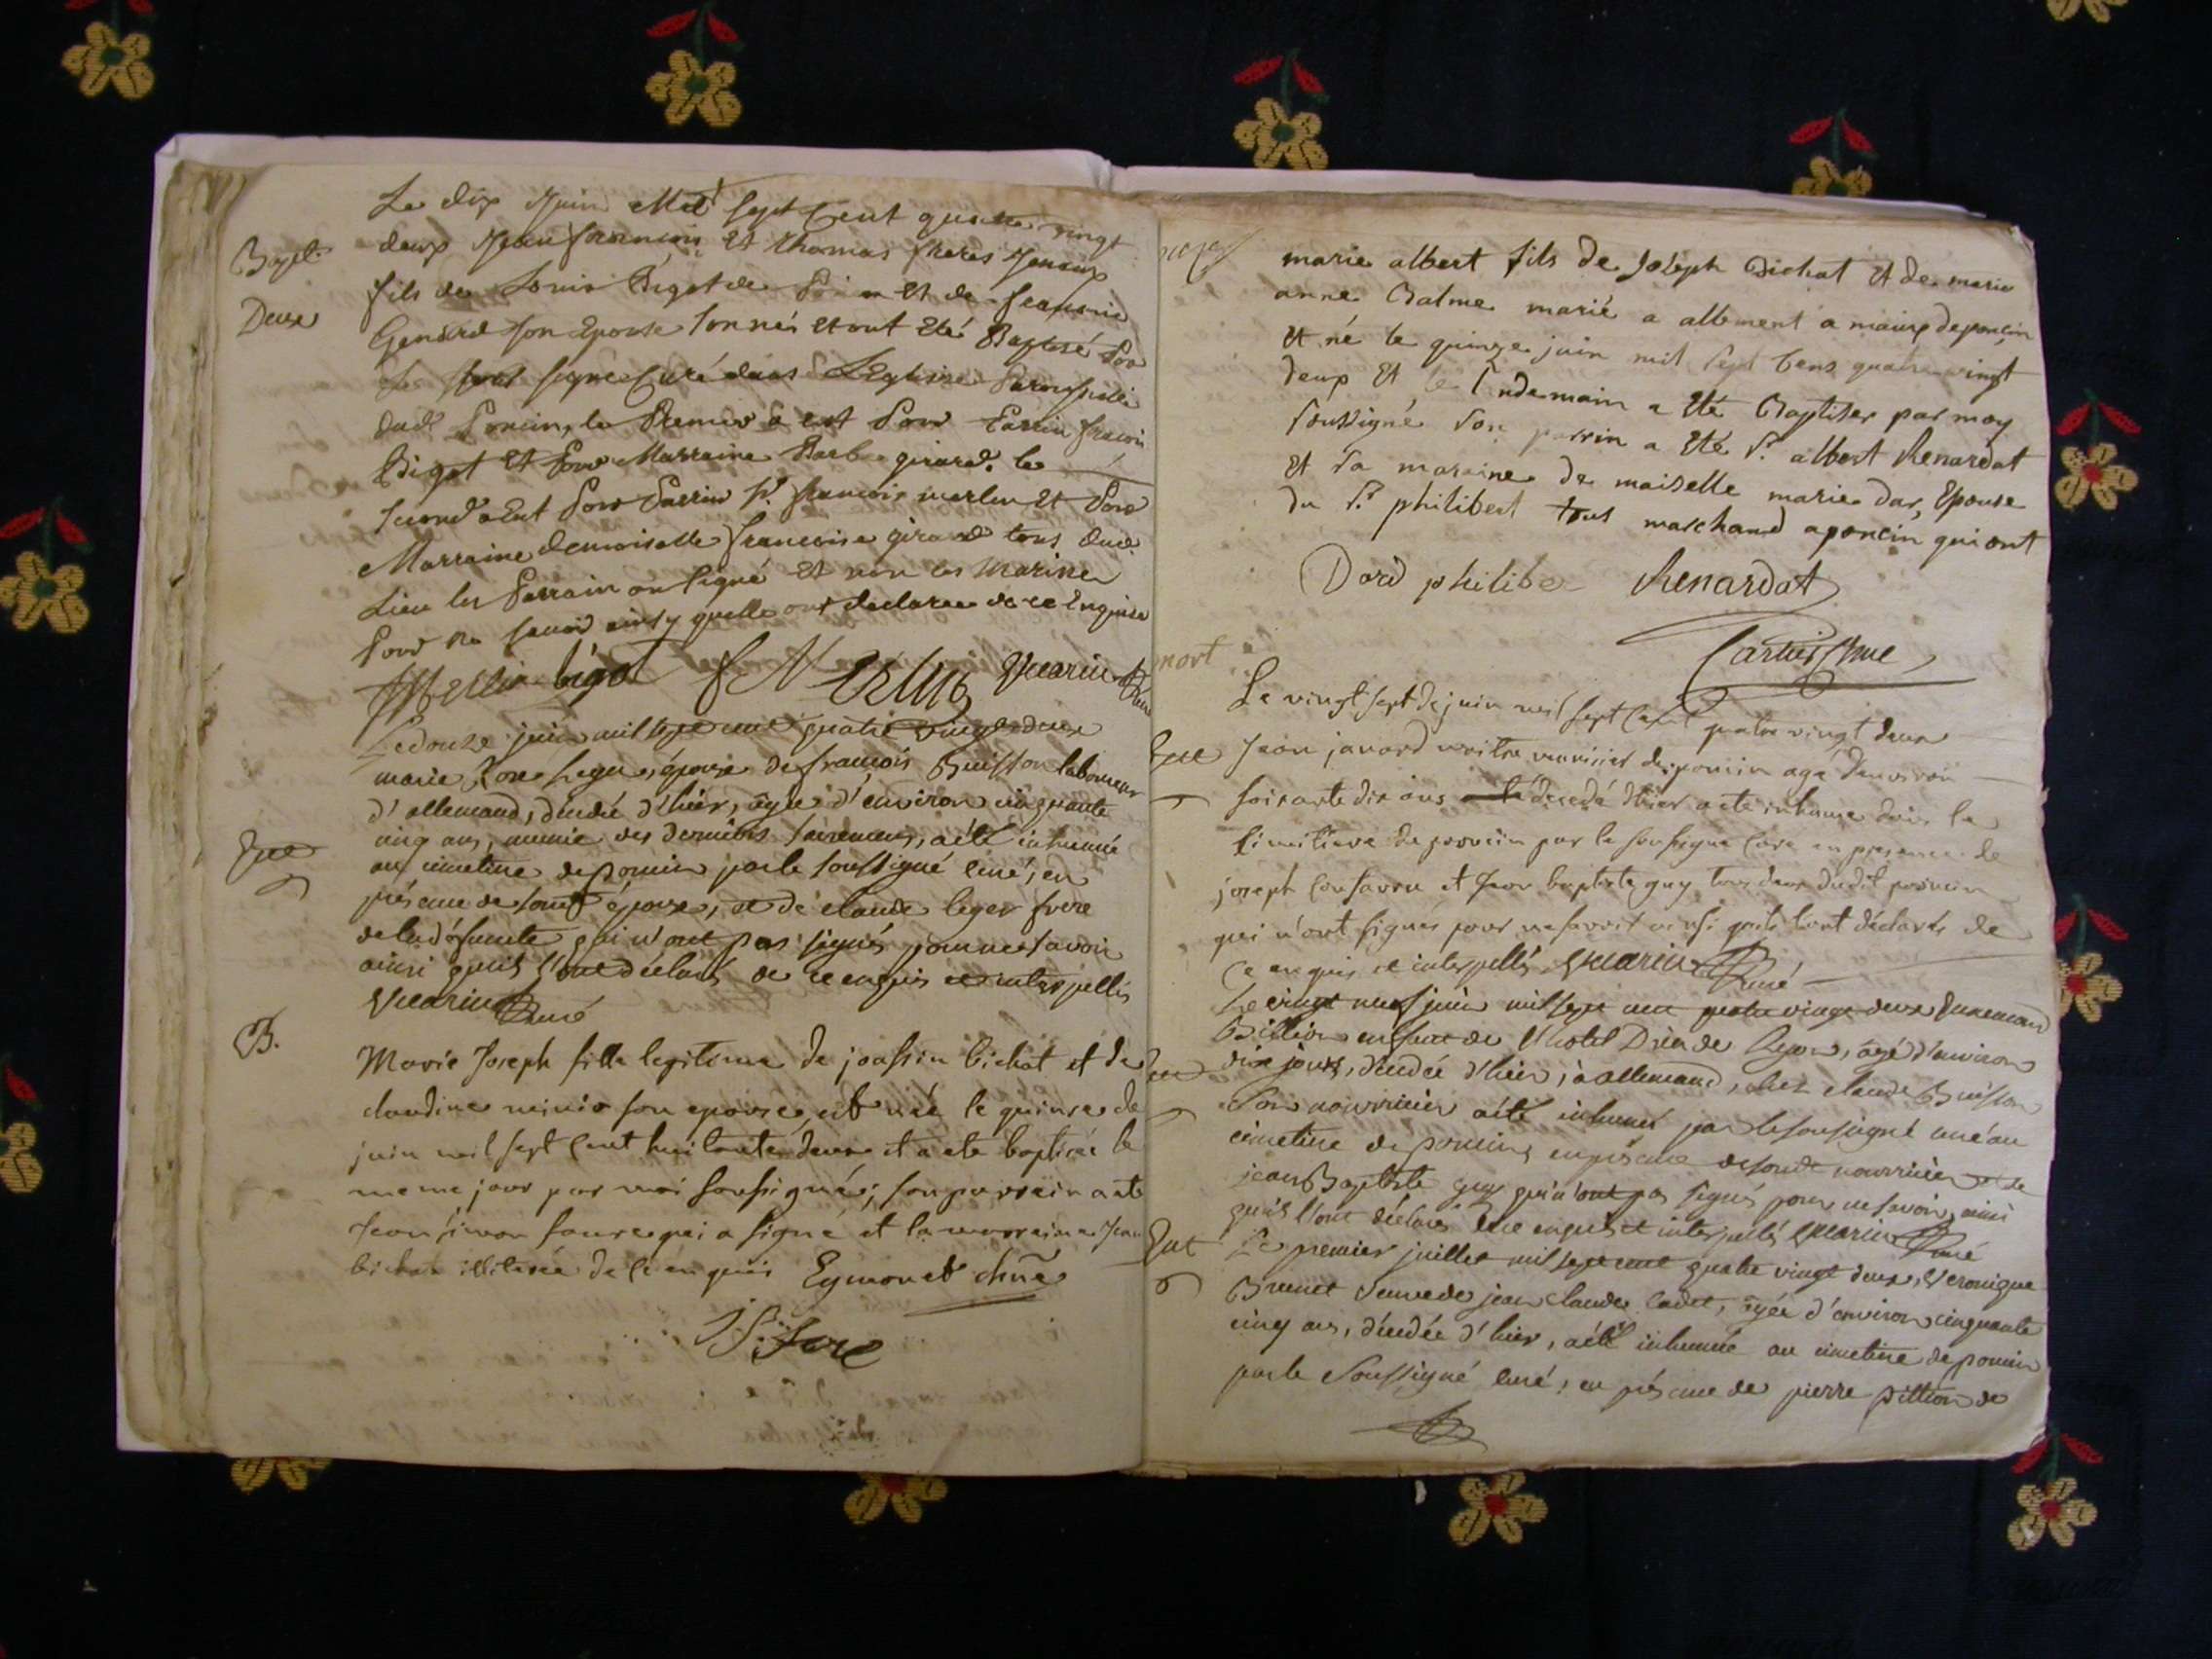 Le dix Juin Mil sept Cent quatre vingt
Bapt.
deux Jean francois Et thomas freres Jumeaux
fils de Louis Bigot de et de francoise
Deux
son Epouse sont nés et ont Eté Baptisé Par
signé Curé dans L'Eglise Paroissialle
dud Poncin, le Premier a eut Pour Parrin francois
Bigot Et Pour Marraine Barbe girard. le
second a Eut Pour Parrin Sr. francois merlin Et Pour
Marraine demoiselle francoise girard tous dud
Lieu les Parrain on signé Et non les Marine
Pour ne savoir ainsy quelle ont declaree de ce Enquise
bigot
Le douze juin mil sept cent quatre vingt deux
marie epouse de francois Buisson laboureur
d'allemand, décédée d'hier, âgée d'environ cinquante
cinq ans, munie des derniers sacremens, a été inhumée
au cimetiere de poncin par le soussigné curé, en
présence de epoux, et de claude leger frere
de la défunte qui n'ont pas signés pour ne savoir
ainsi qu'ils l'ont déclaré de ce enquis et interpellés
curé
B.
Marie Joseph fille legitime de joassin bichat et de
claudine son epouse, est née le quinse de
juin mil sept cent huitante deux et a ete baptisée le
meme jour par moi soussigné; son parrein a ete
Jean simon faure qui a signé et la marreine
bichat illiterée de ce enquis Egmonet
marie albert fils de Joseph Bichat Et de marie
anne Balme marié a allement a maiux de poncin
Et né le quinze juin mil sept Cens quatre vingt
deux Et le lendemain a Eté Baptiser par moy
soussigné son parrin a Eté Sr. albert Renardat
Et sa maraine de maiselle marie Epouse
du Sr. philibert tous marchand a poncin, qui ont
philibe Renardat
mort
Le vingt sept de juin mil sept Cent quatre vingt deux
Jean janard maitre menuisier de poncin agé d'environ
soixante dix ans decedé d'hier a ete inhumé dans le
cimitiere de poncin par le soussigné Curé en presence de
joseph et Jean baptiste guy tous deux dudit poncin
qui n'ont signés pour ne savoir ainsi quils l'ont déclarés de
Ce enquis et interpellés curé
Le vingt neuf juin mil sept cent quatre vingt deux
enfant de l'hotel Dieu de Lyon, âgé d'environ
dix jours, décédé d'hier, à allemand, chez claude Buisson
son nourricier a été inhumé par le soussigné curé au
cimetiere de poncin en présence nourricier et de
jean Baptiste guy qui n'ont pas signés pour ne savoir, ainsi
qu'ils l'ont déclaré de ce enquis et interpellés curé
Le premier juillet mil sept cent quatre vingt deux, veronique
Brunet veuve de jean claude Cadet, âgée d'environ cinquante
cinq ans, décédée d'hier, a été inhumée au cimetiere de poncin
par le Soussigné curé, en présence de pierre pittion de